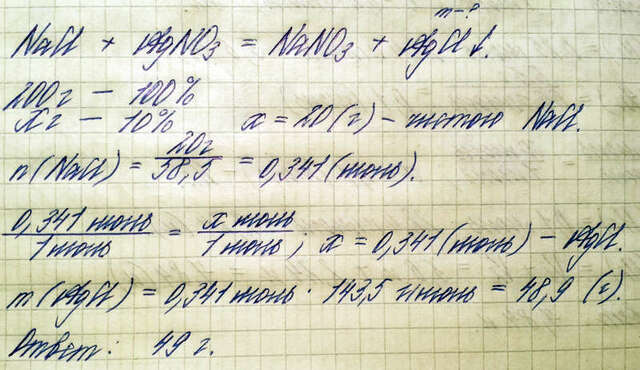 m-?
NaCl + AgNO3 = NaNO3 + AgCl↓.
200г - 100%
xг - 10% x = 20 (г) - чистого NaCl.
n(NaCl) = 20г / 58,5 = 0,341 (моль).
0,341 моль / 1 моль = x моль / 1 моль; x = 0,341 (моль) - AgCl.
m(AgCl) = 0,341 моль · 143,5 г/моль = 48,9 (г).
Ответ: 49 г.